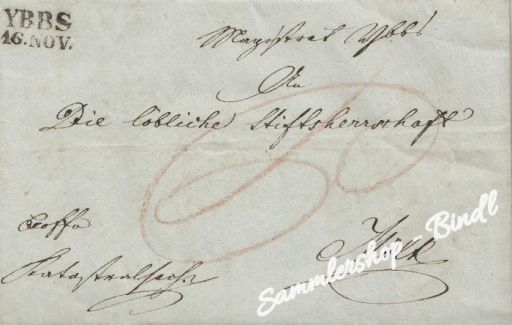 YBBS
16.NOV.
Magistrat Ybbs
An
Die löbliche Stiftsherrschaft
Katastralsache
Sammlershop - Bindl